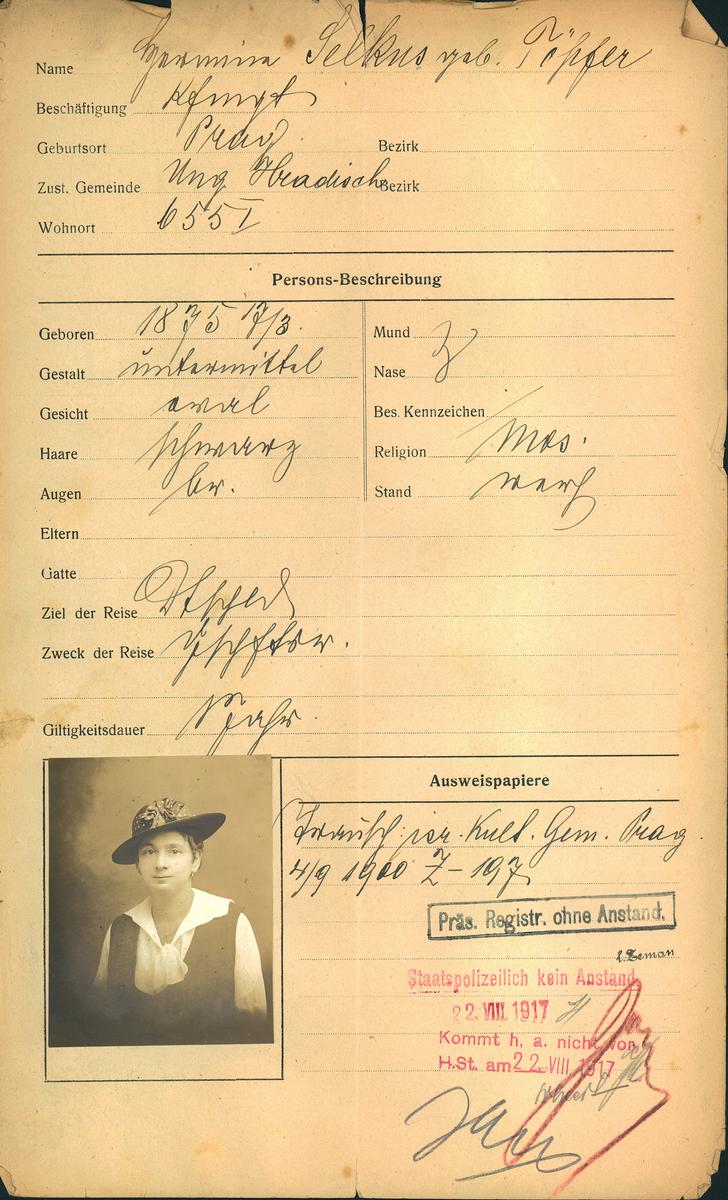 Name Hermine Selkus geb. Töpfer
Beschäftigung Kfmgt
Geburtsort Prag Bezirk
Zust. Gemeinde Ung Hradisch Bezirk
Wohnort 655 I
Persons-Beschreibung
Geboren 1875 17/3. Mund
Gestalt untermittel Nase
Gesicht oval Bes. Kennzeichen
Haare schwarz Religion Mos.
Augen br. Stand verh
Eltern
Gatte
Ziel der Reise Dtschld
Zweck der Reise
Giltigkeitsdauer 1 Jahr
Ausweispapiere
Trausch. isr. Kult. Gem. Prag
4/9 1900 Z-197
Präs. Registr. ohne Anstand.
Zeman
Staatspolizeilich kein Anstand
22. VIII. 1917
Kommt h. a. nicht vor
H.St. am 22. VIII. 1917